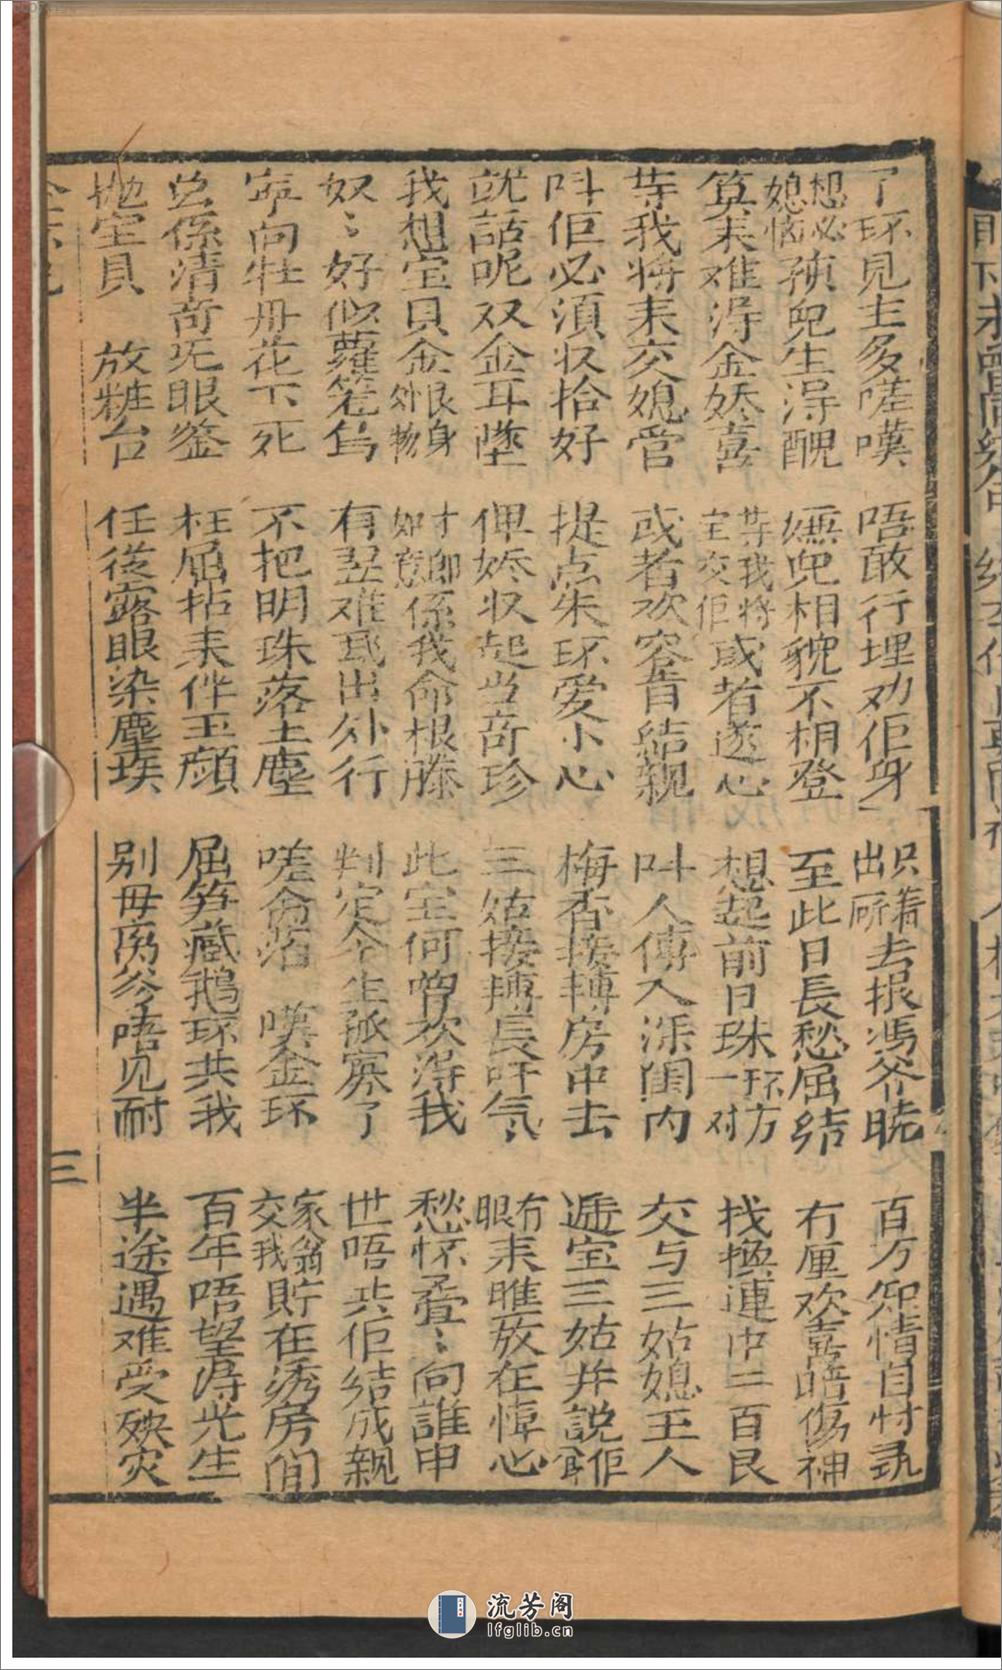 了环見主多嗟嘆　唔敢行埋劝佢身　只着出厛去报馮爷曉　百万怨情自忖尋
想必媳恼　兜生得醜　嫵兜相貌不相登　至此日長愁屈结　冇厘欢喜暗傷神
算来难得金娇喜　等我將宝交佢或者遂心　想起前日珠环方一对　找換連巾二百艮
等我将来交媳管　或者欢容肯結親　叫人傳入深闺内　交与三姑媳主人
叫佢必須収拾好　提点朱环爱小心　梅香接轉房中去　逓宝三姑并説佢
就話呢双金耳墜　俾娇収起当奇珍　三姑接轉長吁气　冇眼来瞧放在悼心
我想宝貝金艮身外物　才郎如意係我命根藤　此宝何曾欢得我　愁怀叠〻向誰申
奴〻好似蘿笼鳥　有翌难飛出外行　判定今生孤寡了　世唔共佢結成親
寧向牡丹花下死　不把明珠落土塵　嗟命泊　嘆金环　家翁交我貯在绣房间
岂係清奇旡眼鉴　枉屈拈来伴玉顏　屈笋藏鵝环共我　百年唔望得光生
抛宝貝　放粧台　任從露眼染塵埃　别毋离爷唔见耐　半途遇难受殃灾
三
流芳阁
lfglib.cn